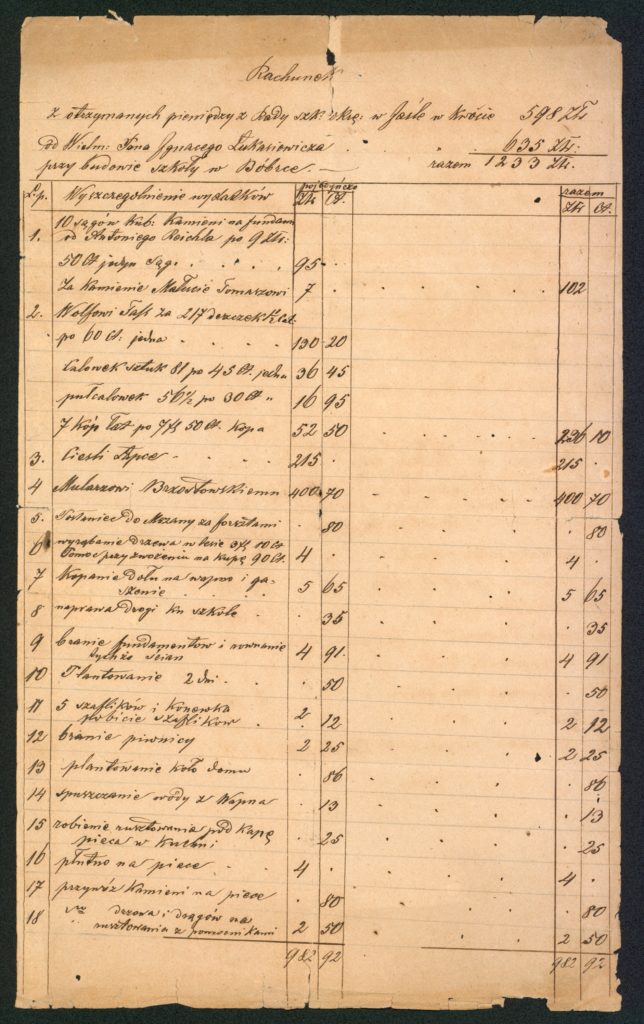 Rachunek
z otrzymanych pieniędzy z Rady szk: okrę: w Jaśle w kwocie 598 Złr
od Wielm: Pana Ignacego Łukasiewicza . . 635 Złr.
przy budowie szkoły w Bóbrce. — razem 1233 Złr.
L.p. Wyszczególnienie wydatków pojedyńczo Złr Ct. razem Złr Ct.
10 sągów Kub: Kamieni na fundam
1. od Antoniego Reichla po 9 Złr:
50 Ct jeden sąg. 95 .
Za Kamienie Tomaszowi 7 . 102
2. Wolfowi Tafs za 217 deszczek
po 60 Ct: jedna 130 20
Calowek sztuk 81 po 45 Ct. jedna 36 45
pułcalowek 56½ po 30 Ct " 16 95
7 Kóp Łat po 7 fl 50 Ct. Kopa 52 50 236 10
3. Cieśli 215 . 215 .
4 Mularzowi Brzostowskiemu 400 70 400 70
5. Posłaniec do Mszany za forsztami . 80 . 80
6 wyrąbanie drzewa w lesie 3 fl 10 Ct
Pomoc przy zwożeniu na kupę 90 Ct. 4 . 4 .
7 Kopanie dołu na wapno i ga-
szenie 5 65 5 65
8 naprawa drogi ku szkole . 35 . 35
9 branie fundamentów i rownanie
tychże ścian 4 91. 4 91
10 Plantowanie 2 dni . 50 . 50
11 5 szaflików i Konewka
pobicie szaflikow 2 12 2 12
12 branie piwnicy 2 25 2 25
13 plantowanie koło domu . 86 . 86
14 spuszczanie wody z Wapna . 13 . 13
15 robienie rusztowania pod Kapę
pieca w Kuchni . 25 . 25
16 płutno na piece 4 . 4 .
17 przywóz Kamieni na piece . 80 . 80
18 drzewa i drągów na
rusztowania z pomocnikami 2 50 2 50
982 92 982 92